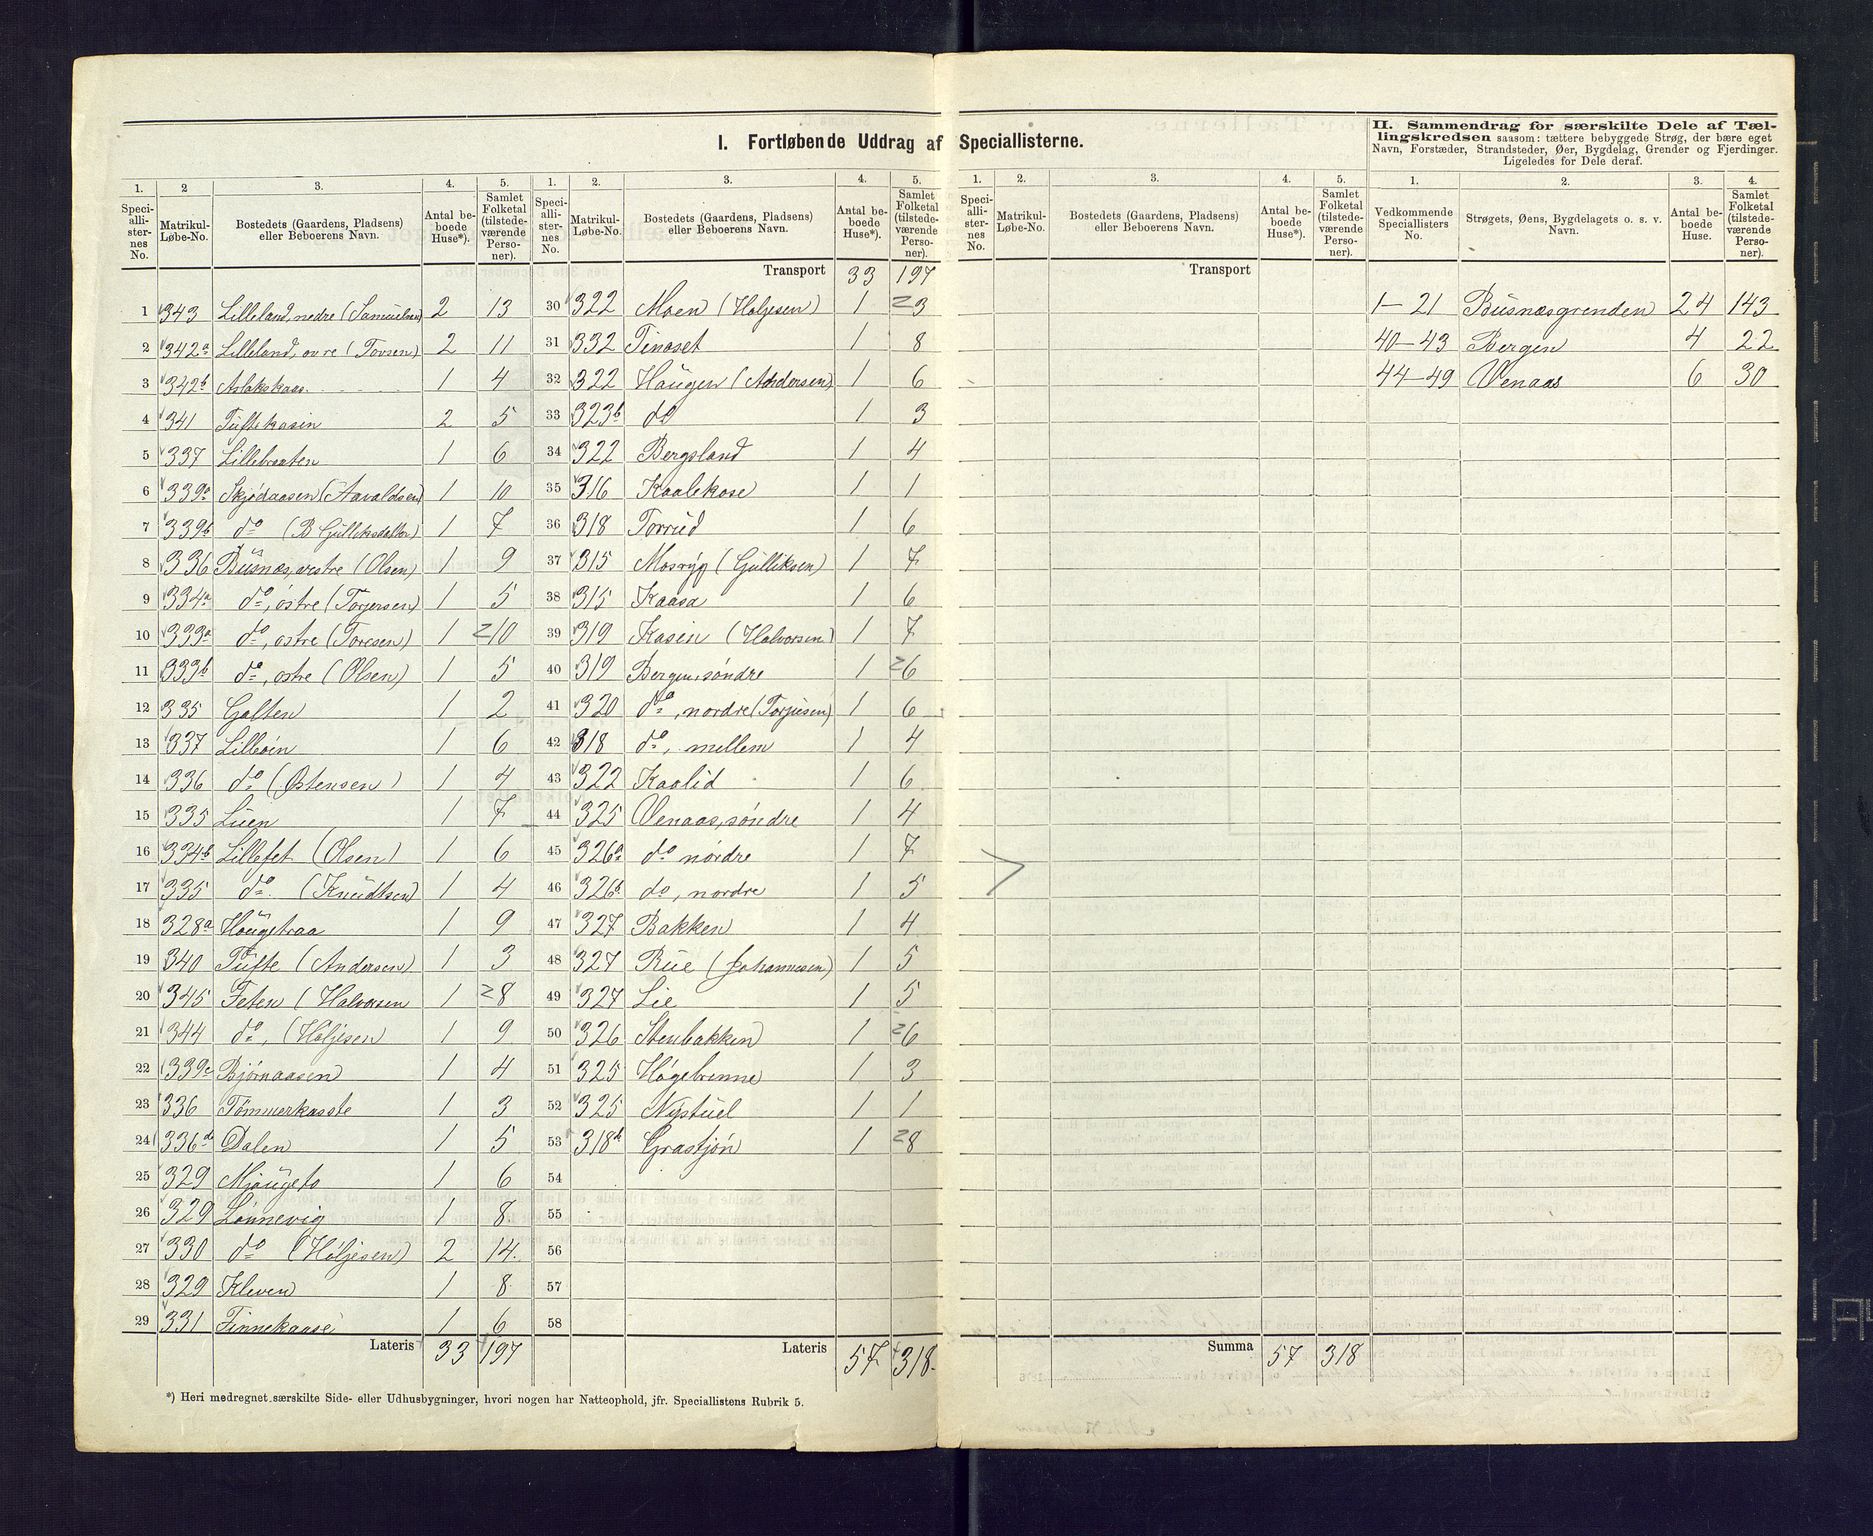 I. Fortløbende Uddrag af Speciallisterne.
II. Sammendrag for særskilte Dele af Tællingskredsen saasom: tættere bebyggede Strøg, der bære eget
Navn, Forstæder, Strandsteder, Øer, Bygdelag, Grender og Fjerdinger.
Ligeledes for Dele deraf.
1. 2 3. 4. 5. 1. 2. 3. 4. 5. 1. 2. 3. 4. 5. 1. 2. 3. 4.
Speciallisternes No. Matrikul-Løbe-No. Bostedets (Gaardens, Pladsens) eller Beboerens Navn. Antal beboede Huse*). Samlet Folketal (tilstedeværende Personer).
Speciallisternes No. Matrikul-Løbe-No. Bostedets (Gaardens, Pladsens) eller Beboerens Navn. Antal beboede Huse*). Samlet Folketal (tilstedeværende Personer).
Speciallisternes No. Matrikul-Løbe-No. Bostedets (Gaardens, Pladsens) eller Beboerens Navn. Antal beboede Huse*). Samlet Folketal (tilstedeværende Personer).
Vedkommende Speciallisters No. Strøgets, Øens, Bygdelagets o. s. v. Navn. Antal beboede Huse. Samlet Folketal (tilstedeværende Personer).
1 343 Lilleland, nedre (Samuelsen) 2 13
2 342a Lilleland, øvre (Tovsen) 2 11
3 342b Aslakskaas 1 4
4 341 Tuftekasin 2 5
5 337 Lillebraaten 1 6
6 339a Skjødaasen (Aavaldsen) 1 10
7 339b do (B Gulliksdatter) 1 7
8 336 Busnæs, vestre (Olsen) 1 9
9 334a do, østre (Torjersen) 1 5
10 333a do, østre (Toresen) 1 2 10
11 333b do, østre (Olsen) 1 5
12 335 Galten 1 2
13 337 Lilleøin 1 6
14 336 do (Østensen) 1 4
15 335 Luen 1 7
16 334b Lillefet (Olsen) 1 6
17 335 do (Knudtsen) 1 4
18 328a Haugetraa 1 9
19 340 Tufte (Andersen) 1 3
20 345 Feten (Halvorsen 1 2 8
21 344 do, (Holjesen) 1 9
22 339c Bjørnaasen 1 4
23 336 Tømmerkaaste 1 3
24 336d Dalen 1 5
25 329 Mjaugeto 1 6
26 329 Lønnevig 1 8
27 330 do (Høljesen) 2 14
28 329 Kleven 1 8
29 331 Finnekaase 1 6
Lateris 33 197
Transport 33 197
30 322 Moen (Holjesen) 1 2 3
31 332 Tinoset 1 8
32 322 Haugen (Andersen) 1 6
33 323b do 1 3
34 322 Bergsland 1 4
35 316 Kaalekose 1 1
36 318 Torrud 1 6
37 315 Mosryg (Gulliksen) 1 7
38 315 Kaasa 1 6
39 319 Kasin (Halvorsen) 1 7
40 319 Bergen, søndre 1 2 6
41 320 do, nordre (Torjusen) 1 6
42 318 do, mellem 1 4
43 322 Kaalid 1 6
44 325 Venaas, søndre 1 4
45 326a do nordre 1 7
46 326b do, nordre 1 5
47 327 Bakken 1 4
48 327 Rue (Johannesen) 1 5
49 327 Lie 1 5
50 326 Stenbakken 1 2 6
51 325 Høgebrenne 1 3
52 325 Nystuel 1 1
53 318b Grastjøn 1 2 8
54
55
56
57
58
Lateris 57 318
Transport
Summa 57 318
1–21 Busnæsgrenden 24 143
40–43 Bergen 4 22
44–49 Venaas 6 30
*) Heri medregnet særskilte Side- eller Udhusbygninger, hvori nogen har Natteophold, jfr. Speciallistens Rubrik 5.